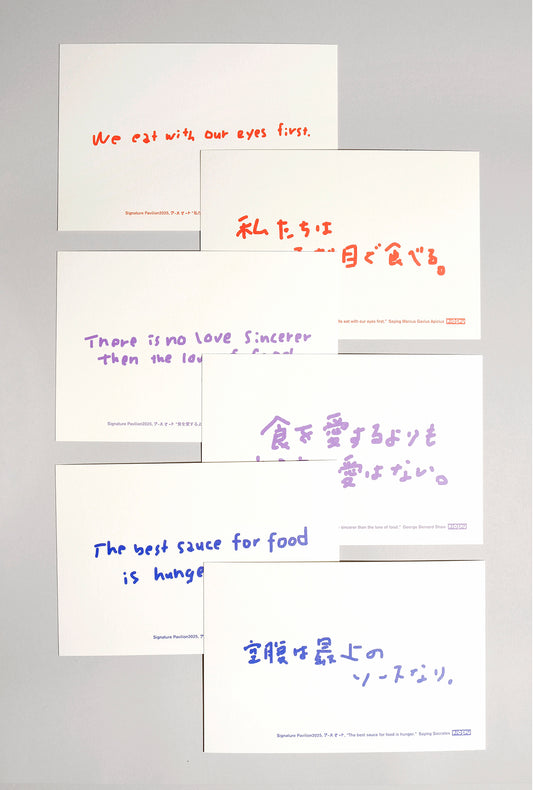 We eat with our eyes first.
Signature Pavilion2025,
私たちは
目で食べる。
We eat with our eyes first." Saying Marcus Gavius Apicius
There is no love sincerer
then the
Signature Pavilion2025,
食を愛するよりも
愛はない。
sincerer than the love of food." George Bernard Shaw
The best sauce for food
is hunge
Signature Pavilion2025,
空腹は最上の
ソースなり。
Signature Pavilion2025, "The best sauce for food is hunger." Saying Socrates